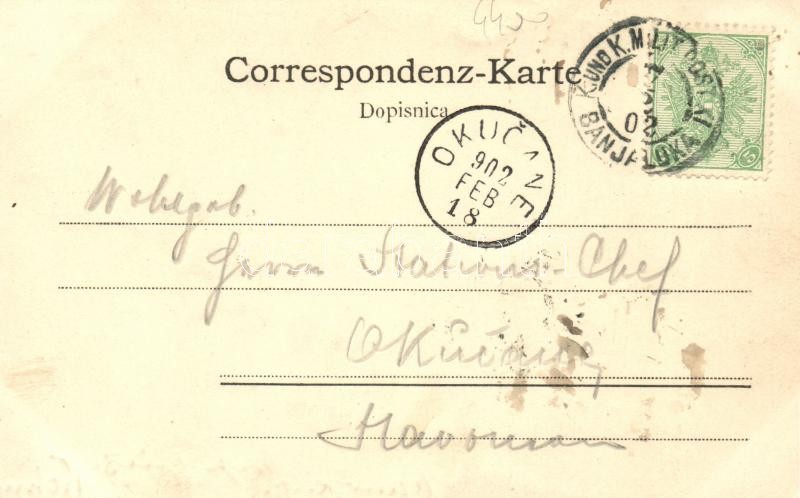 4400
Correspondenz-Karte
Dopisnica
K. UND K. MILIT. POST XI
02
BANJALUKA
5
OKUČANE
902
FEB
18
Wohlgeb.
Herrn Stations-Chef
Okučane
Slavonien